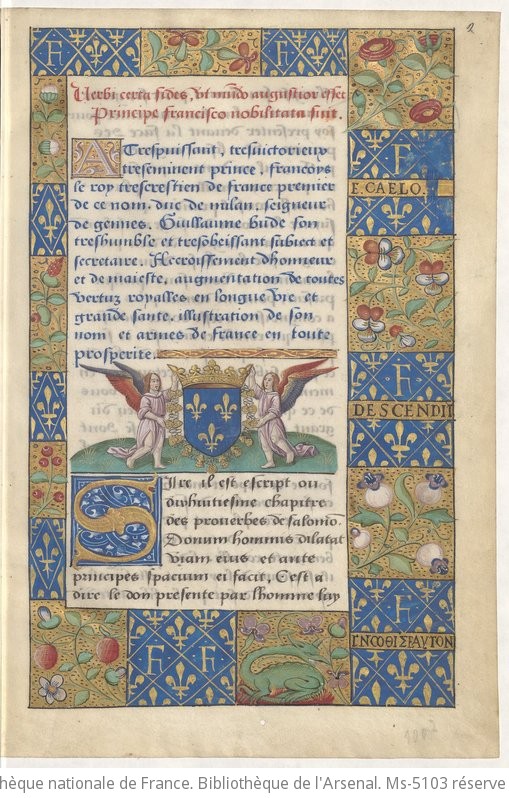 2
Verbi certa fides, ut mundo augustior esset
Principe francisco nobilitata sint.
A Trespuissant, tresvictorieux
treseminent prince, francoys
le roy trescrestien de france premier
de ce nom. duc de milan, seigneur
de gennes. Guillaume budé son
treshumble et tresobeissant subiect et
secretaire. Accroissement dhonneur
et de maieste, augmentation de toutes
vertuz royalles en longue vie et
grande sante, illustration de son
nom et armes de france en toute
prosperite.
SIre il est escript ou
dixhuitiesme chapitre
des prouerbes de salomō.
Donum hominis dilatat
viam eius et ante
principes spacium ei facit, Cest a
dire le don presente par lhomme luy
F
F
F
E. CAELO.
F
DESCENDIT
F
ΓΝΩΘΙ ΣΕΑΥΤΟΝ
F
F
hèque nationale de France. Bibliothèque de l'Arsenal. Ms-5103 réserve